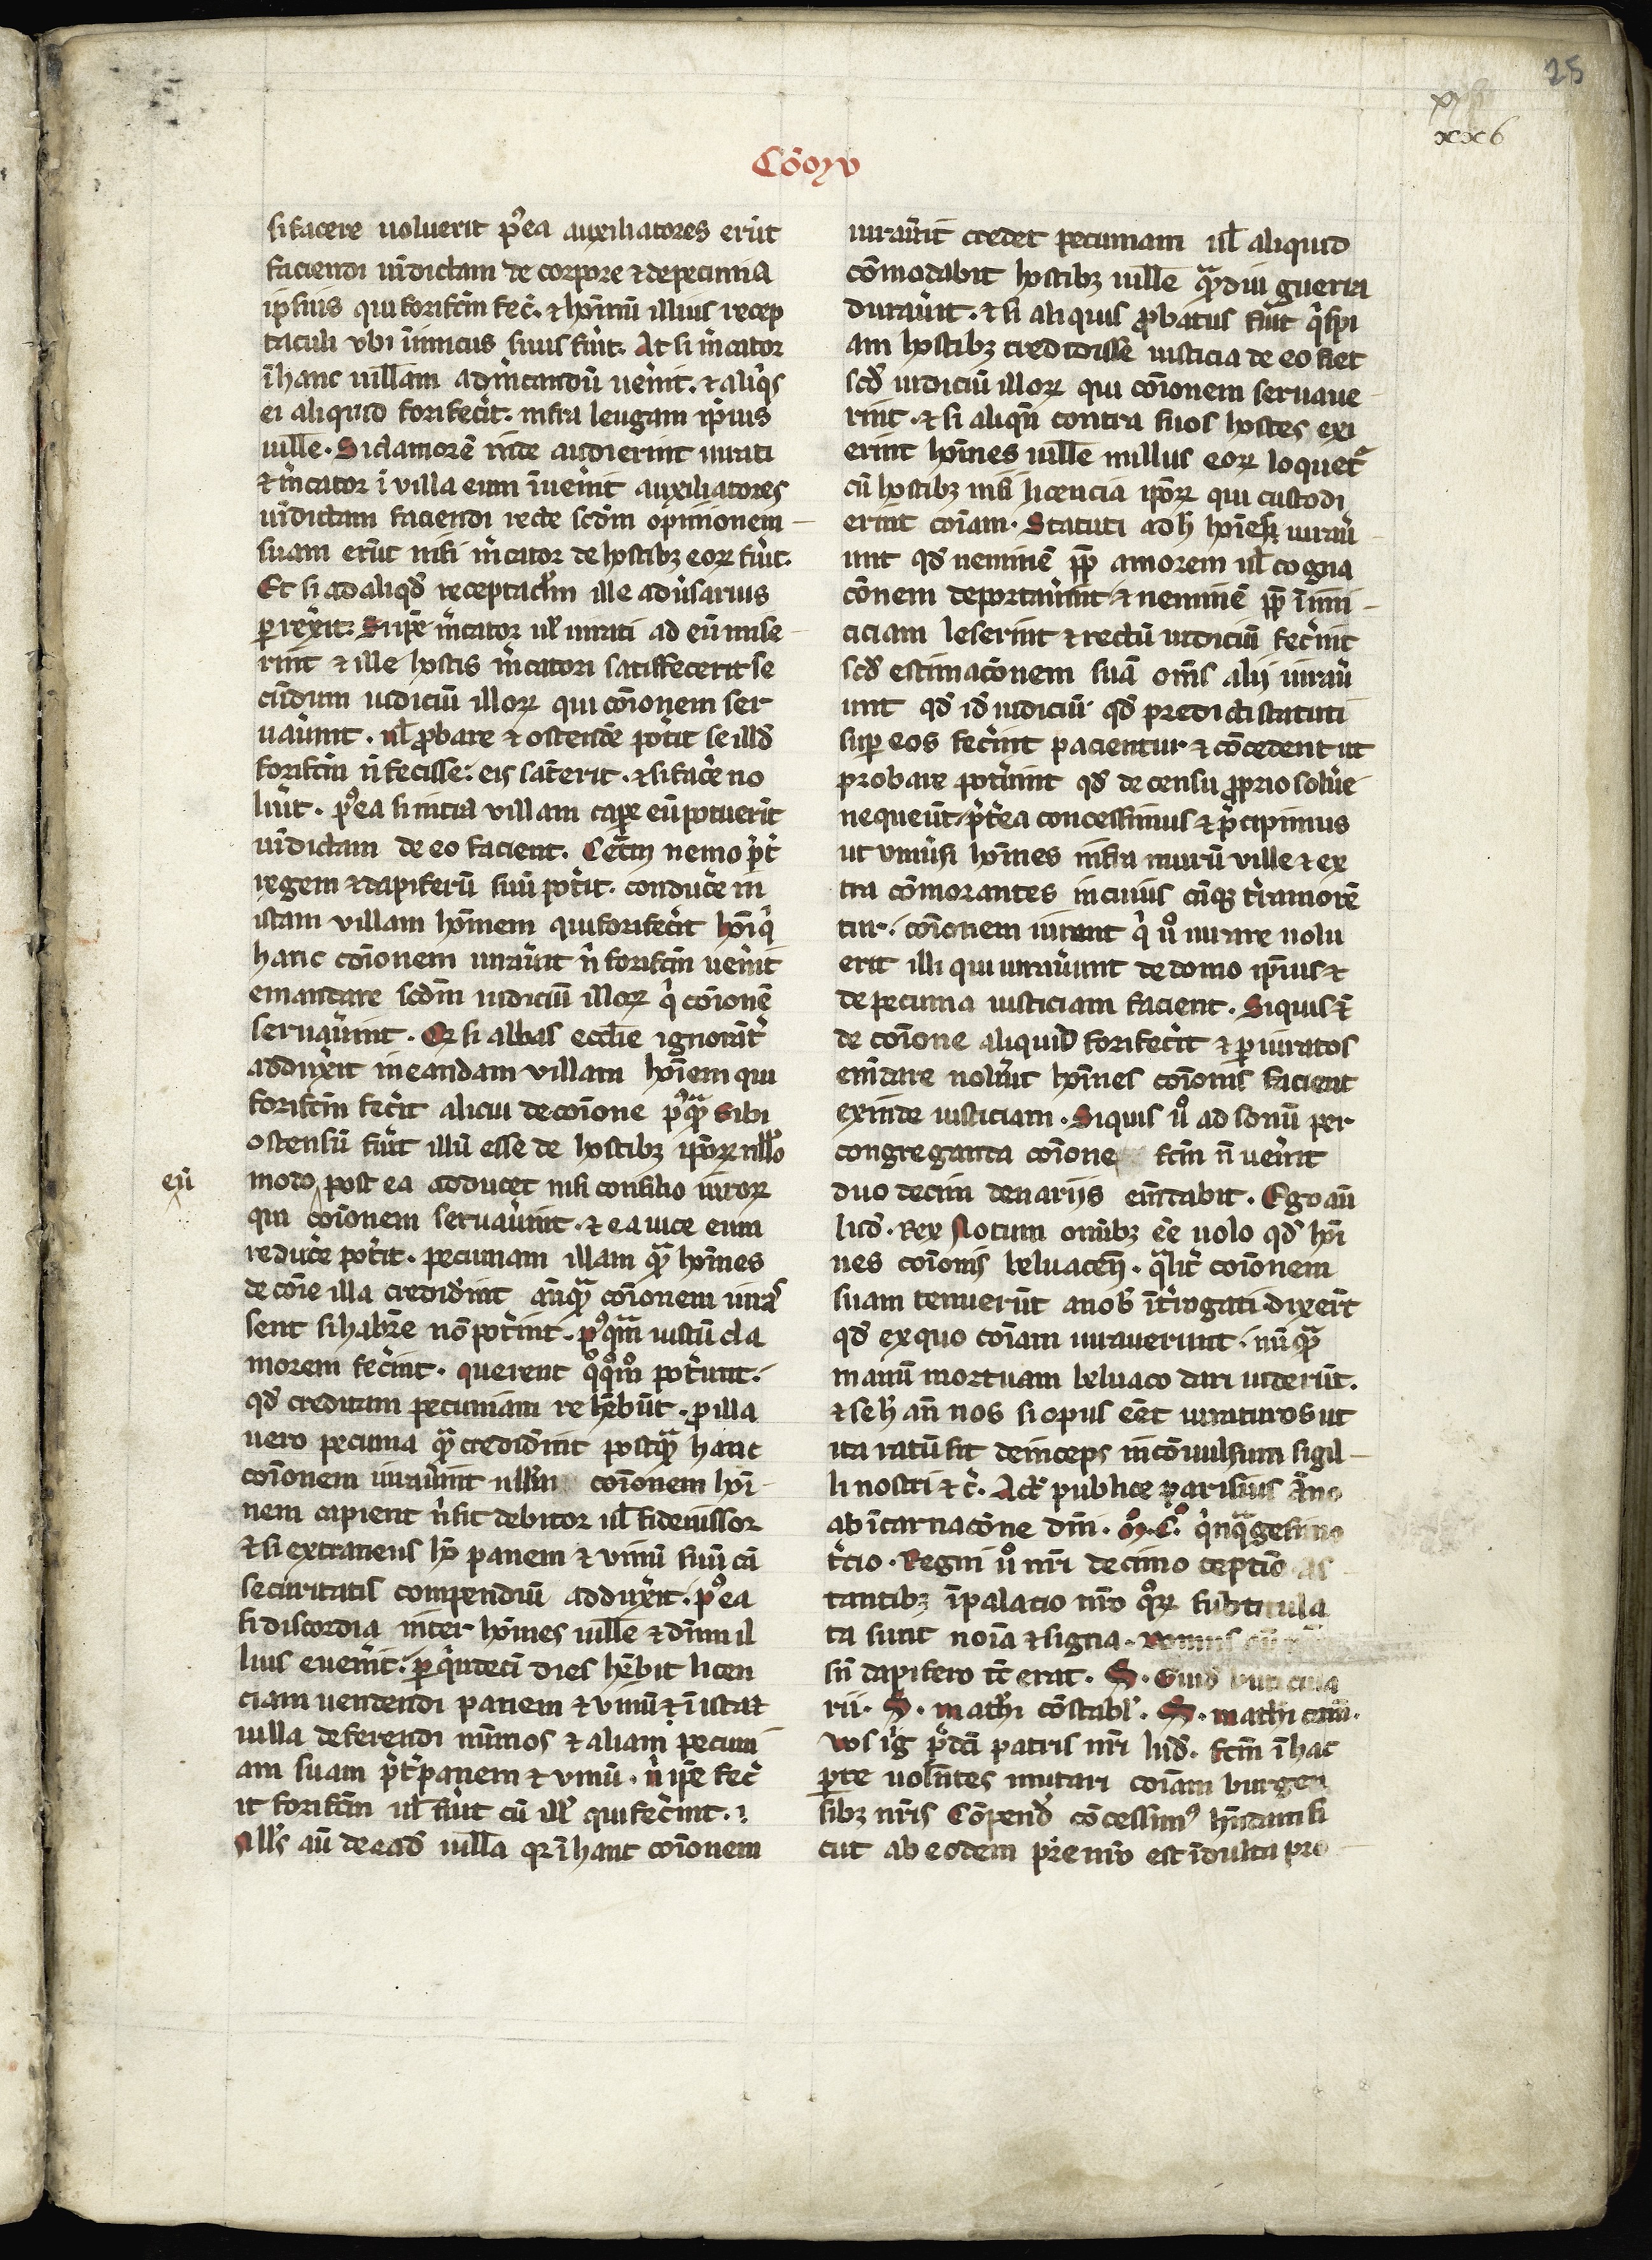 25
xx6
Cōoıȝ
si facere uoluerit pꝰea auxiliatores erūt
faciendi uīdictam de corpore ⁊ de pecunia
ipsius qui forifcm̄ fec̄. ⁊ hoīnū illius recep
taculi vbi inimicus suus fuīt. At si m̄cator
ī hanc uillam ad m̄candū uen̄it. ⁊ aliqͥs
ei aliquid forifecīt. infra leugam ipīus
uille. Si clamorē inde audierint iurati
⁊ m̄cator ī villa eum īuen̄it auxiliatores
uīdictam faciendi recte scdm̄ opinionem
suam erūt nisi m̄cator de hostibꝫ eoꝝ fuīt.
Et si ad aliqd̄ receptacl̄m ille adūsarius
ꝑrexīt. Sup̄ m̄cator ul̄ iurati ad eū mise
rint ⁊ ille hostis m̄catori satisfecerit se
cūdum iudiciū illoꝝ qui cōīonem ser
uauīnt. ul̄ ꝓbare ⁊ ostendē potīt se illd̄
forifcm̄ n̄ fecisse. eis sat erit. ⁊ si facē no
luīt. pꝰea si intra villam capē eū potuerīt
uīdictam de eo facient. Cetm̄ nemo p̄t
regem ⁊ dapiferū suū potīt. conducē in
istam villam hoīnem qui forifecīt hoī qͥ
hanc cōīonem iurauīt n̄ forifcm̄ uenīt
emandare scdm̄ iudiciū illoꝝ qͥ cōīonē
seruauīnt. Et si abbas ecclīe ignorāt
adduxīt in eandam villam hoīem qui
forifcm̄ fecīt alicui de cōīone pꝰqͣ sibi
ostensū fuīt illū esse de hostibꝫ ipōꝝ nllo
modo post ea adducet nisi consilio iuroꝝ
eū
qui cōīonem seruauīnt. ⁊ ea uice eum
reducē potīt. pecuniam illam qͣ hoīnes
de cōīe illa credidīnt anꝗͣ cōīonem iuraͣ
sent si habrē nō potīnt. pꝰqm̄ iustū cla
morem fecīnt. querent qͦqm̄ͦ potuīt.
qd̄ creditam pecuniam rehēbūt. ꝓ illa
uero pecunia qͣ credidīnt postqͣ hanc
cōīonem iurauīnt nllm̄ cōīonem hoī
nem capient n̄ sit debitor ul̄ fideiussor
⁊ si extraneus hō panem ⁊ vinū suū cā
securitatis compendiū adduxīt. pꝰea
si discordia inter hoīnes uille ⁊ dn̄m il
lius euenīt. ꝑ qͥndecī dies hēbit licen
ciam uendendi panem ⁊ vinū ⁊ ī istat
uilla deferendi nūmos ⁊ aliam pecuni
am suam p̄t panem ⁊ vinū. n̄ ipē fec
īt forifcm̄ ul̄ fuīt cū ill̄ qui fecīnt.
Null̄s aū de ead̄ uilla qͥ ī hanc cōīonem
iurauīt credet pecuniam ul̄ aliquid
cōmodabit hostibꝫ uille qͣdiu guerra
durauīt. ⁊ si aliquis ꝓbatus fuīt qͥspi
am hostibꝫ credidisse iusticia de eo fiet
scd̄ iudiciū illoꝝ qui cōīonem seruaue
rint. ⁊ si aliqn̄ contra suos hostes exi
erint hoīnes uille nullus eoꝝ loquetͬ
cū hostibꝫ nisi licencia ipōꝝ qui custodi
erint coīam. Statuti ad h̄ hoīes iurau
unt qd̄ neminē ꝓp̄ amorem ul̄ cogna
cōnem deportauīnt ⁊ neminē ꝓp̄ īimi
ciciam leserint ⁊ rectū iudiciū fecīnt
scd̄ estimacōnem suā om̄s alij iurau
unt qd̄ id̄ iudiciū qd̄ predicti statuti
suꝑ eos fecīnt pacientur ⁊ cōcedent ut
probare potuīnt qd̄ de censu ꝓprio soluē
nequeūt. p̄tea concessimus ⁊ p̄cipimus
ut vniūsi hoīnes infra murū ville ⁊ ex
tra cōmorantes in cuius cūqꝫ t̄ra morē
tur. cōīonem iurent qͥ uͦ iurare nolu
erit illi qui iurauīnt de domo ipīus ⁊
de pecunia iusticiam facient. Siquis ī
de cōīone aliquid forifecīt ⁊ ꝑ iuratos
em̄dare noluīt hoīnes cōīonis facient
exinde iusticiam. Siquis uͦ ad sonū per
congreganda cōīone fcm̄ n̄ uenīt
duodecim denarijs em̄dabit. Ego aū
lud̄. Rex Notum om̄ibꝫ eē uolo qd̄ hoī
nes cōīonis beluaceñ. qͣlit cōīonem
suam tenuerūt a nob̄ īt̄rogati dixer̄t
qd̄ ex quo coīam iurauerunt. nūqͣ
manū mortuam beluaco dari viderūt.
⁊ se h̄ an̄ nos si opus eēt iuraturos ut
ita ratū sit deinceps incōuulsum sigil
li nostri ⁊ c̄. Act̄ publice parisius āno
ab īcarnacōne dn̄i. m̊. c̊. qͥnqͣgesimo
t̄cio. Regni uͦ nr̄i decimo ceptīo as
tantibꝫ ī palacio nr̄o qͦꝝ subtitula
ta sunt noīa ⁊ signa.
sn̄ dapifero tc̄ erat. S. Guid̄ buticula
rii. S. mathi cōstabl̄. S. mathi cam̄.
vos iḡ p̄dcī patris nr̄i lud̄. fcm̄ ī hac
ꝑte uolētes imitari coīam burgen
sibꝫ nr̄is Cōpend̄ cōcessimꝰ hn̄dam si
cut ab eodem pr̄e nr̄o est īdulta pro